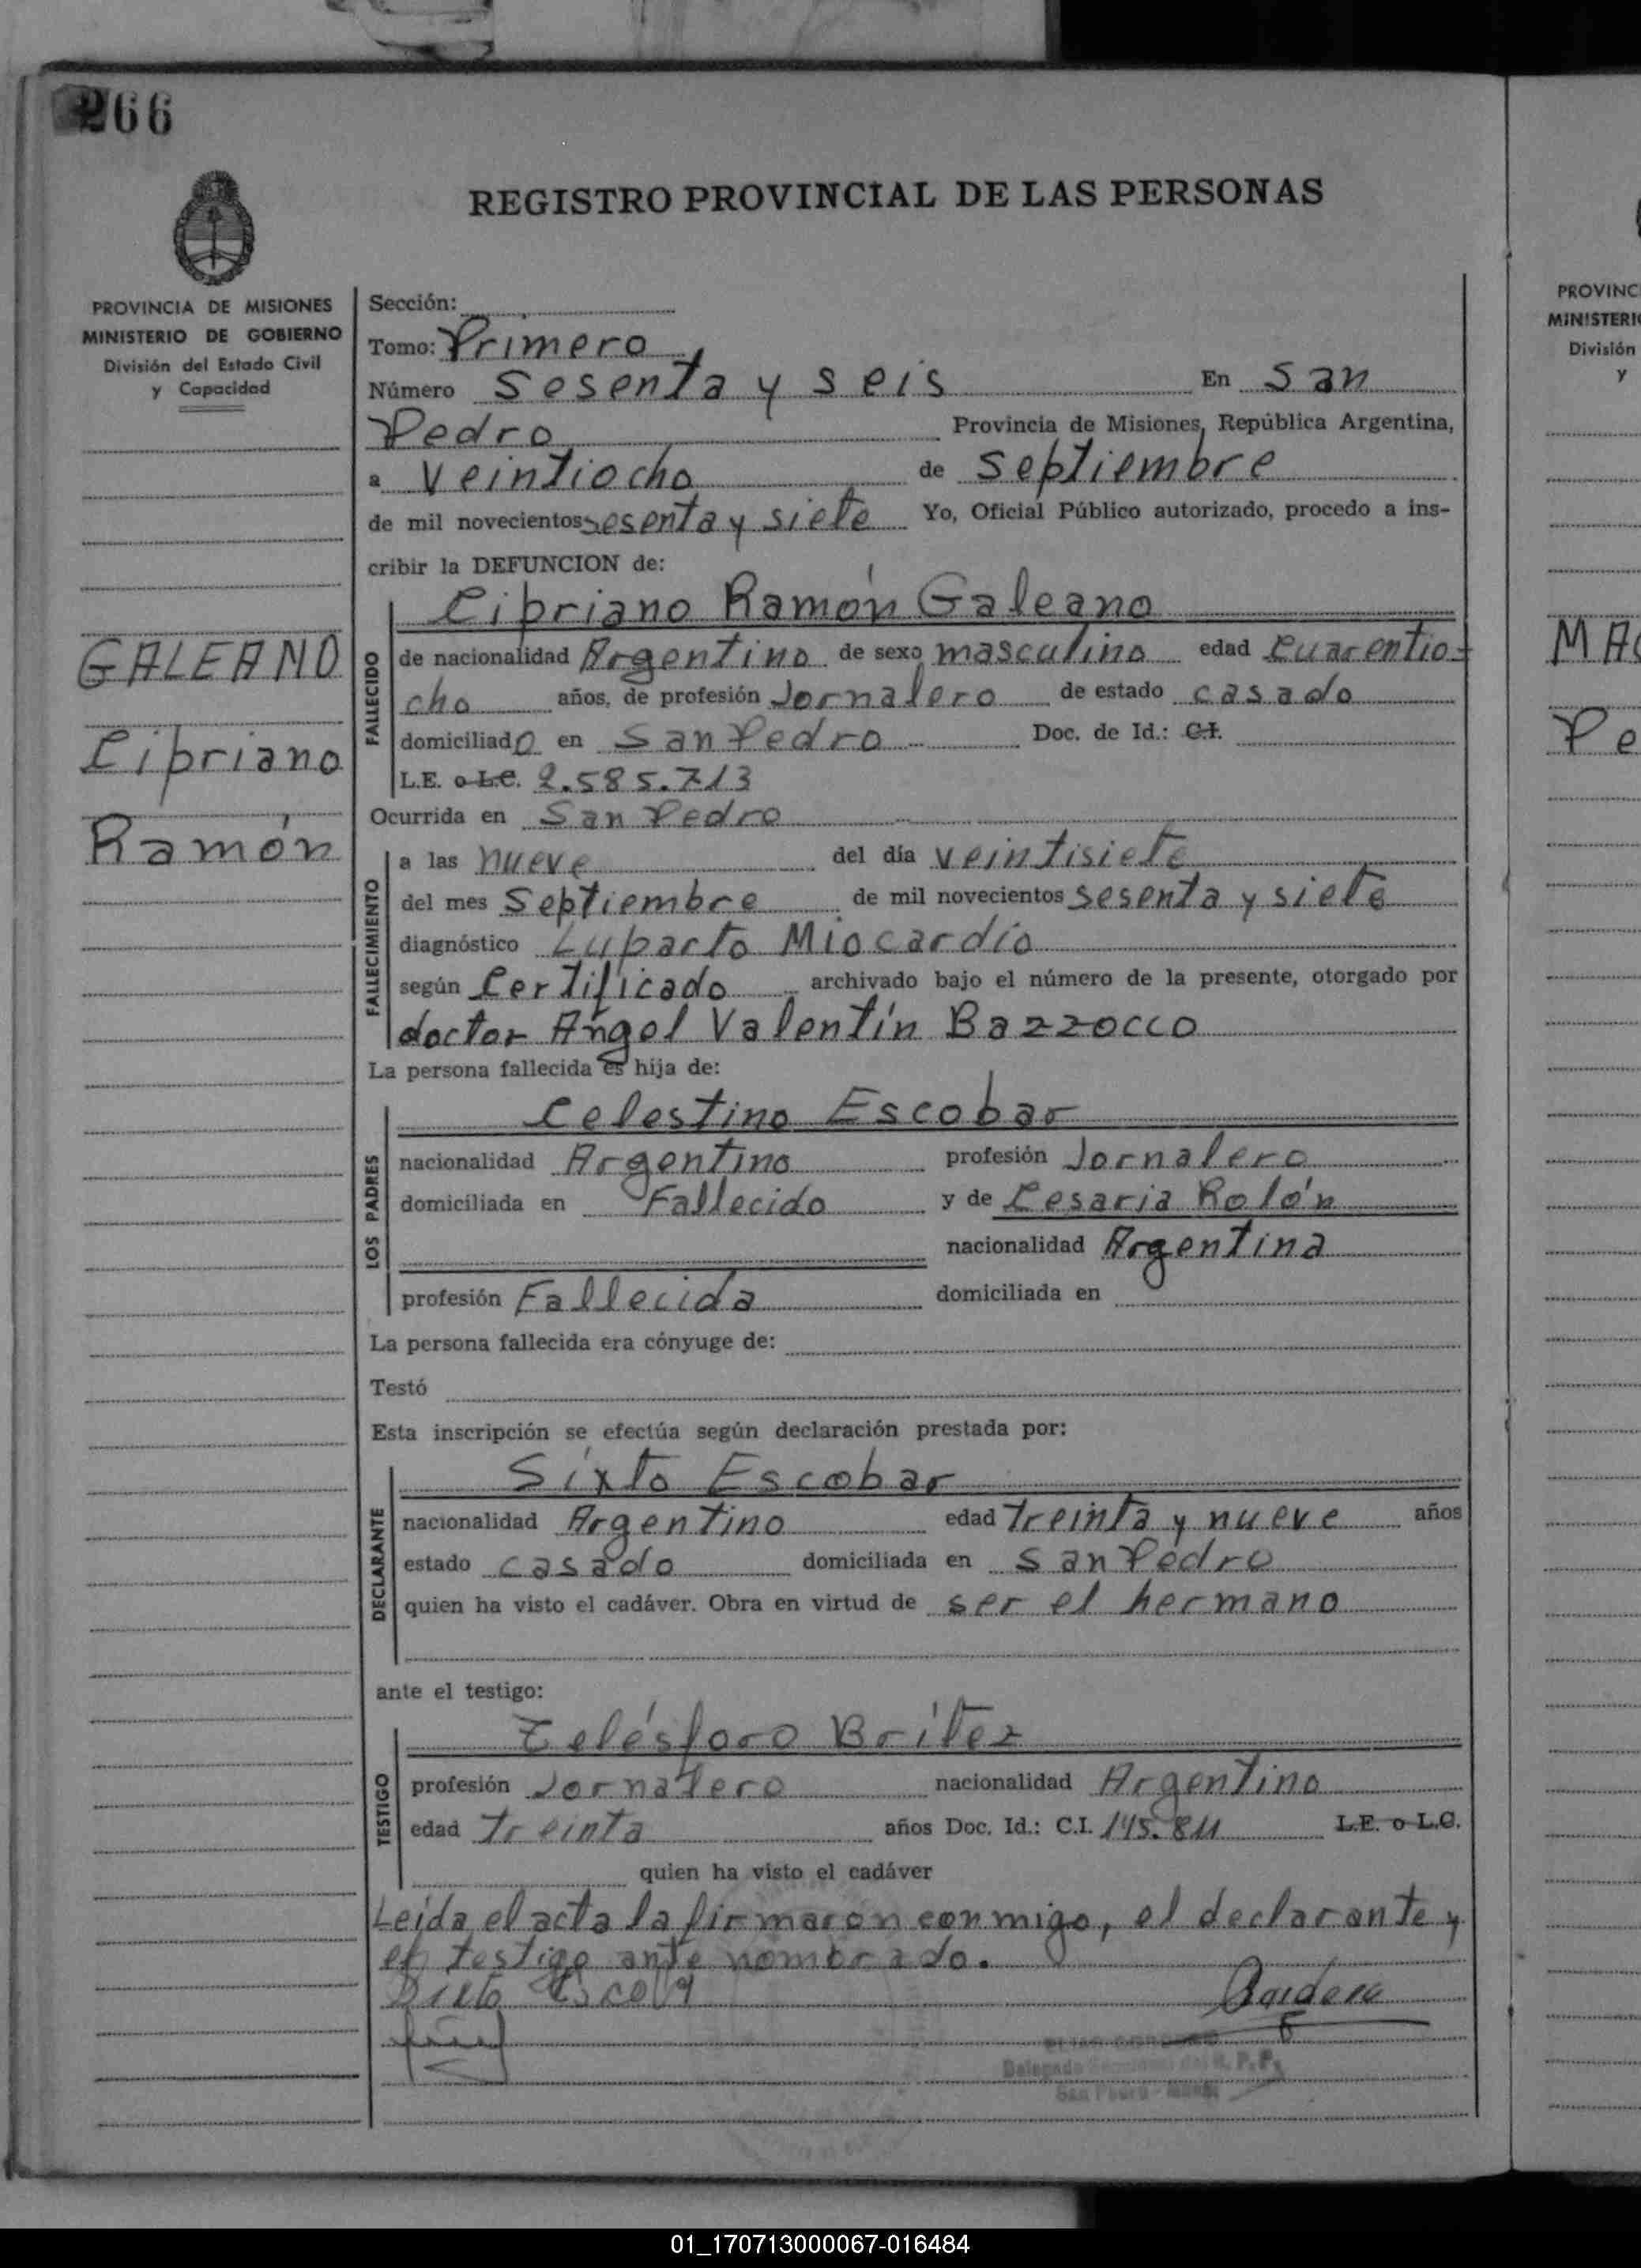 266
REGISTRO PROVINCIAL DE LAS PERSONAS
PROVINCIA DE MISIONES
MINISTERIO DE GOBIERNO
División del Estado Civil
y Capacidad
GALEANO
Cipriano
Ramón
Sección:
Tomo: Primero
Número Sesenta y seis En San
Pedro Provincia de Misiones, República Argentina,
a veintiocho de Septiembre
de mil novecientos sesenta y siete Yo, Oficial Público autorizado, procedo a ins-
cribir la DEFUNCION de:
Cipriano Ramón Galeano
FALLECIDO
de nacionalidad Argentino de sexo masculino edad Cuarentio-
cho años, de profesión Jornalero de estado casado
domiciliado en San Pedro Doc. de Id.: C.I.
L.E. o L.C. 2.585.713
Ocurrida en San Pedro
FALLECIMIENTO
a las nueve del día veintisiete
del mes Septiembre de mil novecientos sesenta y siete
diagnóstico Miocardio
según Certificado archivado bajo el número de la presente, otorgado por
doctor Angel Valentín Bazzocco
La persona fallecida es hija de:
LOS PADRES
Celestino Escobar
nacionalidad Argentino profesión Jornalero
domiciliada en Fallecido y de Cesaria Rolón
nacionalidad Argentina
profesión Fallecida domiciliada en
La persona fallecida era cónyuge de:
Testó
Esta inscripción se efectúa según declaración prestada por:
DECLARANTE
Sixto Escobar
nacionalidad Argentino edad treinta y nueve años
estado casado domiciliada en San Pedro
quien ha visto el cadáver. Obra en virtud de ser el hermano
ante el testigo:
TESTIGO
Telésforo Britez
profesión Jornalero nacionalidad Argentino
edad treinta años Doc. Id.: C.I. 145.811 L.E. o L.C.
quien ha visto el cadáver
Leída el acta la firmarón conmigo, el declarante y
el testigo ante nombrado.
Delegado
San Pedro
PROVINC
MINISTERI
División
y
MA
Pe
01_170713000067-016484